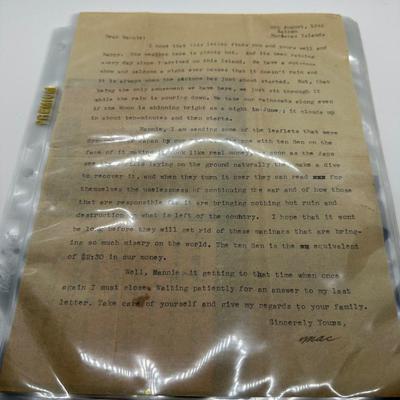 August, 1945
Saipan
Marianas Islands
Dear Mannie:
I hope that this letter finds you and yours well and
happy. The weather here is plenty hot. And its been raining
every day since I arrived on this Island. We have a outdoor
show and seldome a night ever passes that it doesn't rain and
it is always when the picture has just about started. But, that
being the only amusement we have here, we just sit through it
while the rain is pouring down. We take our raincoats along even
if the Moon is shinning bright as a night in June; it clouds up
in about ten-minutes and then starts.
Mannie, I am sending some of the leaflets that were
dropped on Japan by our with ten Sen on the
face of it making it look like real money, soon as the Japs
see this laying on the ground naturally they make a dive
to recover it, and when they turn it over they can read xxx for
themselves the uselessness of continuing the war and of how those
that are responsible for it are bringing nothing but ruin and
destruction to what is left of the country. I hope that it wont
be long before they will get rid of these maninacs that are bring-
ing so much misery on the world. The ten Sen is the xx equivalent
of $2:30 in our money.
Well, Mannie it getting to that time when once
again I must close. Waiting patiently for an answer to my last
letter. Take care of yourself and give my regards to your family.
Sincerely Yours,
Mac